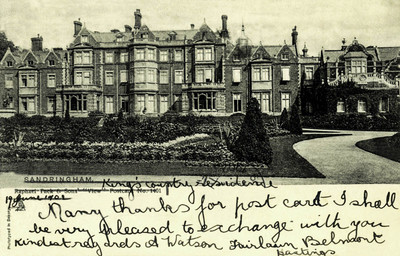 SANDRINGHAM.
King's country Residence
Raphael Tuck & Sons' "View" Postcard No. 1401
19 June 1901
Many thanks for post card I shall
be very pleased to exchange with you
Kindest regards A Watson Fairlawn Belmont
Hastings